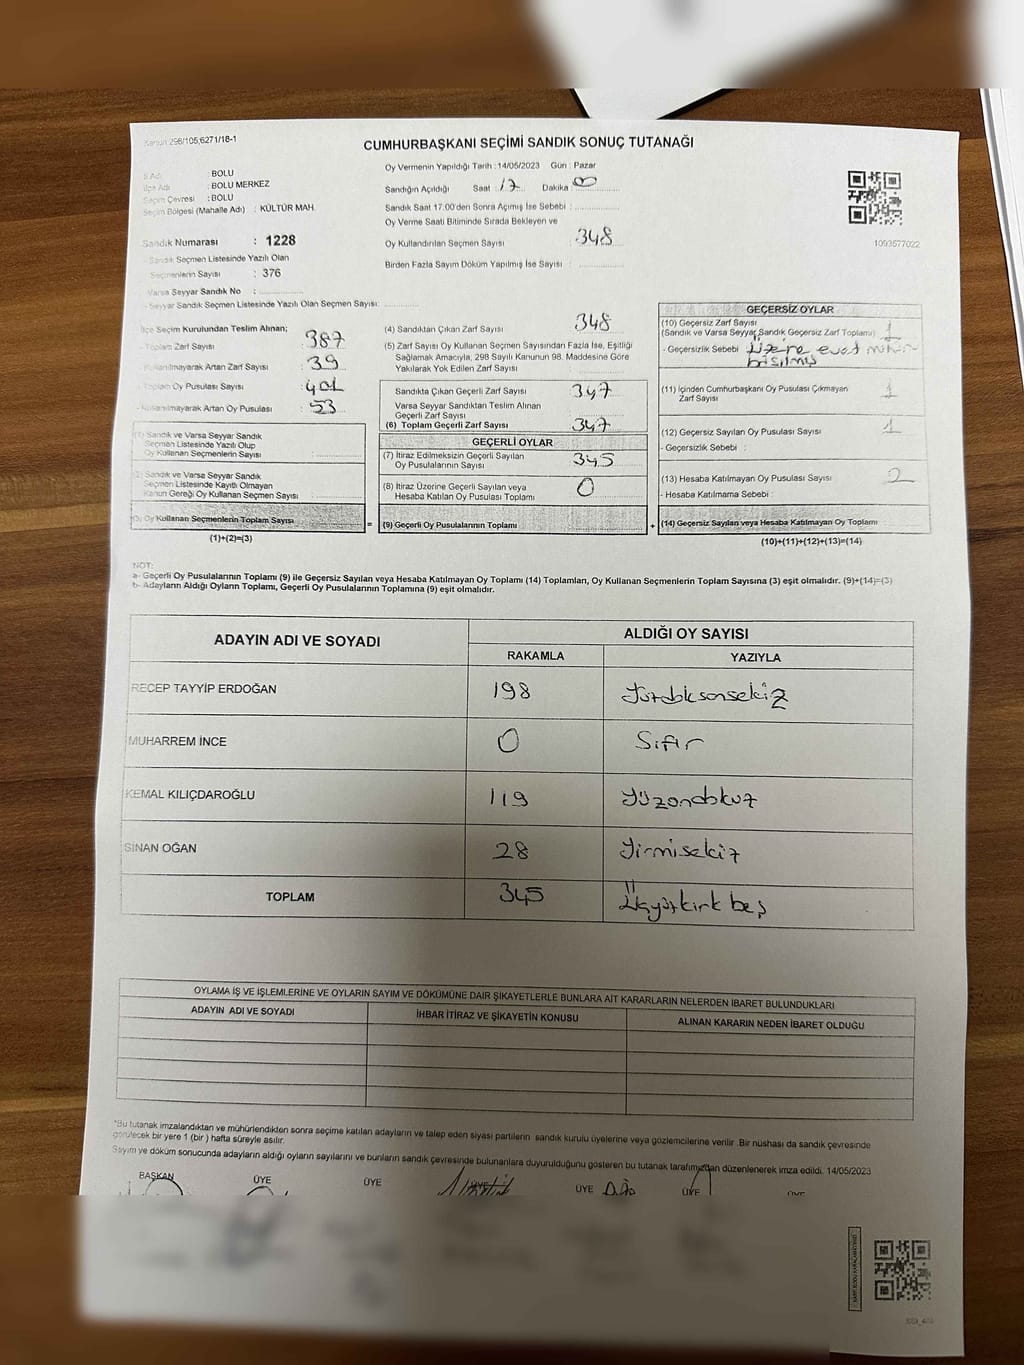 Kanun 298/105;6271/18-1
CUMHURBAŞKANI SEÇİMİ SANDIK SONUÇ TUTANAĞI
İl Adı : BOLU
İlçe Adı : BOLU MERKEZ
Seçim Çevresi : BOLU
Seçim Bölgesi (Mahalle Adı) : KÜLTÜR MAH.
Sandık Numarası : 1228
Sandık Seçmen Listesinde Yazılı Olan
Seçmenlerin Sayısı : 376
Varsa Seyyar Sandık No :
- Seyyar Sandık Seçmen Listesinde Yazılı Olan Seçmen Sayısı:
Oy Vermenin Yapıldığı Tarih : 14/05/2023 Gün : Pazar
Sandığın Açıldığı Saat : 17 Dakika : 0
Sandık Saat 17:00'den Sonra Açımış İse Sebebi :
Oy Verme Saati Bitiminde Sırada Bekleyen ve
Oy Kullandırılan Seçmen Sayısı 348
Birden Fazla Sayım Döküm Yapılmış İse Sayısı :
1093577022
İlçe Seçim Kurulundan Teslim Alınan;
- Toplam Zarf Sayısı : 387
- Kullanılmayarak Artan Zarf Sayısı : 39
- Toplam Oy Pusulası Sayısı : 401
- Kullanılmayarak Artan Oy Pusulası : 53
(1) Sandık ve Varsa Seyyar Sandık
Seçmen Listesinde Yazılı Olup
Oy Kullanan Seçmenlerin Sayısı :
(2) Sandık ve Varsa Seyyar Sandık
Seçmen Listesinde Kayıtlı Olmayan
Kanun Gereği Oy Kullanan Seçmen Sayısı :
(3) Oy Kullanan Seçmenlerin Toplam Sayısı
(1)+(2)=(3)
(4) Sandıktan Çıkan Zarf Sayısı : 348
(5) Zarf Sayısı Oy Kullanan Seçmen Sayısından Fazla İse, Eşitliği
Sağlamak Amacıyla, 298 Sayılı Kanunun 98. Maddesine Göre
Yakılarak Yok Edilen Zarf Sayısı :
Sandıkta Çıkan Geçerli Zarf Sayısı : 347
Varsa Seyyar Sandıktan Teslim Alınan
Geçerli Zarf Sayısı
(6) Toplam Geçerli Zarf Sayısı : 347
GEÇERLİ OYLAR
(7) İtiraz Edilmeksizin Geçerli Sayılan
Oy Pusulalarının Sayısı : 345
(8) İtiraz Üzerine Geçerli Sayılan veya
Hesaba Katılan Oy Pusulası Toplamı : 0
= (9) Geçerli Oy Pusulalarının Toplamı
GEÇERSİZ OYLAR
(10) Geçersiz Zarf Sayısı
(Sandık ve Varsa Seyyar Sandık Geçersiz Zarf Toplamı) : 1
- Geçersizlik Sebebi : Üzerine evet mührü
basılmış
(11) İçinden Cumhurbaşkanı Oy Pusulası Çıkmayan
Zarf Sayısı 1
(12) Geçersiz Sayılan Oy Pusulası Sayısı : 1
- Geçersizlik Sebebi :
(13) Hesaba Katılmayan Oy Pusulası Sayısı : 2
- Hesaba Katılmama Sebebi :
+ (14) Geçersiz Sayılan veya Hesaba Katılmayan Oy Toplamı
(10)+(11)+(12)+(13)=(14)
NOT:
a- Geçerli Oy Pusulalarının Toplamı (9) ile Geçersiz Sayılan veya Hesaba Katılmayan Oy Toplamı (14) Toplamları, Oy Kullanan Seçmenlerin Toplam Sayısına (3) eşit olmalıdır. (9)+(14)=(3)
b- Adayların Aldığı Oyların Toplamı, Geçerli Oy Pusulalarının Toplamına (9) eşit olmalıdır.
ADAYIN ADI VE SOYADI ALDIĞI OY SAYISI
RAKAMLA YAZIYLA
RECEP TAYYİP ERDOĞAN 198 Yüzdoksansekiz
MUHARREM İNCE 0 Sıfır
KEMAL KILIÇDAROĞLU 119 Yüzondokuz
SİNAN OĞAN 28 Yirmisekiz
TOPLAM 345 Üçyüzkırk beş
OYLAMA İŞ VE İŞLEMLERİNE VE OYLARIN SAYIM VE DÖKÜMÜNE DAİR ŞİKAYETLERLE BUNLARA AİT KARARLARIN NELERDEN İBARET BULUNDUKLARI
ADAYIN ADI VE SOYADI İHBAR İTİRAZ VE ŞİKAYETİN KONUSU ALINAN KARARIN NEDEN İBARET OLDUĞU
*Bu tutanak imzalandıktan ve mühürlendikten sonra seçime katılan adayların ve talep eden siyasi partilerin sandık kurulu üyelerine veya gözlemcilerine verilir. Bir nüshası da sandık çevresinde
görülecek bir yere 1 (bir) hafta süreyle asılır.
Sayım ve döküm sonucunda adayların aldığı oyların sayılarını ve bunların sandık çevresinde bulunanlara duyurulduğunu gösteren bu tutanak tarafımızdan düzenlenerek imza edildi. 14/05/2023
BAŞKAN ÜYE ÜYE ÜYE ÜYE ÜYE ÜYE